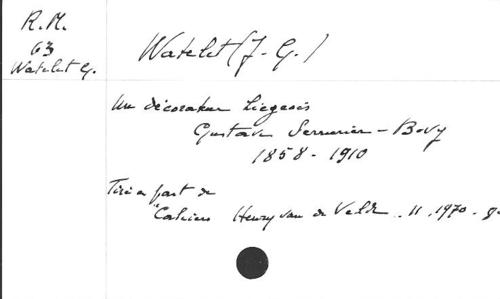 R.M.
63
Watelet G.
Watelet (J-G.)
Un décorateur liégeois
Gustave Serrurier-Bovy
1858-1910
Tiré à part de
"Cahiers Henry van de Velde. 11.1970. 8°